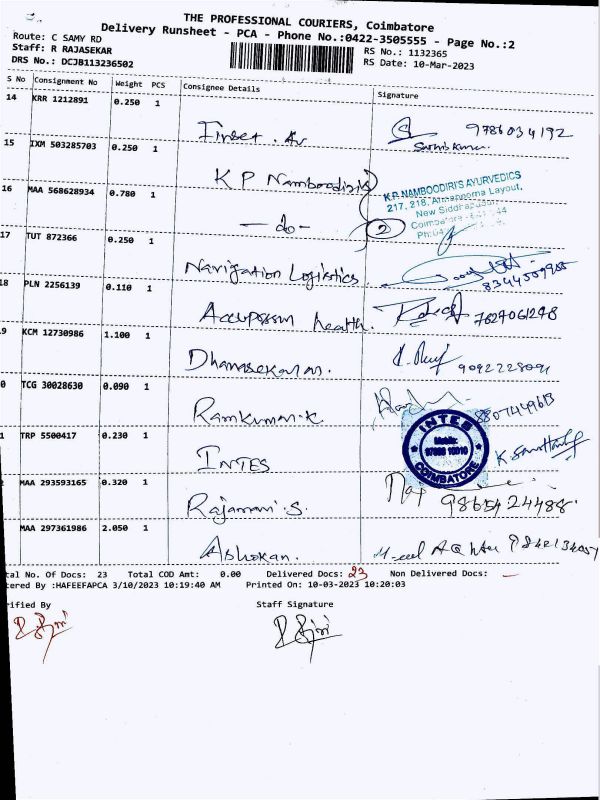 THE PROFESSIONAL COURIERS, Coimbatore
Delivery Runsheet - PCA - Phone No.:0422-3505555 - Page No.:2
Route: C SAMY RD
Staff: R RAJASEKAR
DRS No.: DCJB113236502
RS No.: 1132365
RS Date: 10-Mar-2023
S No Consignment No Weight PCS Consignee Details Signature
14 KRR 1212891 0.250 1
9786034192
15 IXM 503285703 0.250 1
K P Namboodiris
K.P. NAMBOODIRI'S AYURVEDICS
217, 218, Annapoorna Layout,
New Siddhapudur
16 MAA 568628934 0.780 1
- do - 2
17 TUT 872366 0.250 1
Navigation Logistics
18 PLN 2256139 0.110 1
health.
9 KCM 12730986 1.100 1
Dhanasekaran.
9092228091
0 TCG 30028630 0.090 1
Ramkumar.K
8807449613
1 TRP 5500417 0.230 1
INTES
INTES
COIMBATORE
MAA 293593165 0.320 1
Rajamani.S.
9865424488
MAA 297361986 2.050 1
Ashokan.
tal No. Of Docs: 23 Total COD Amt: 0.00 Delivered Docs: 23 Non Delivered Docs: —
tered By :HAFEEFAPCA 3/10/2023 10:19:40 AM Printed On: 10-03-2023 10:20:03
rified By Staff Signature